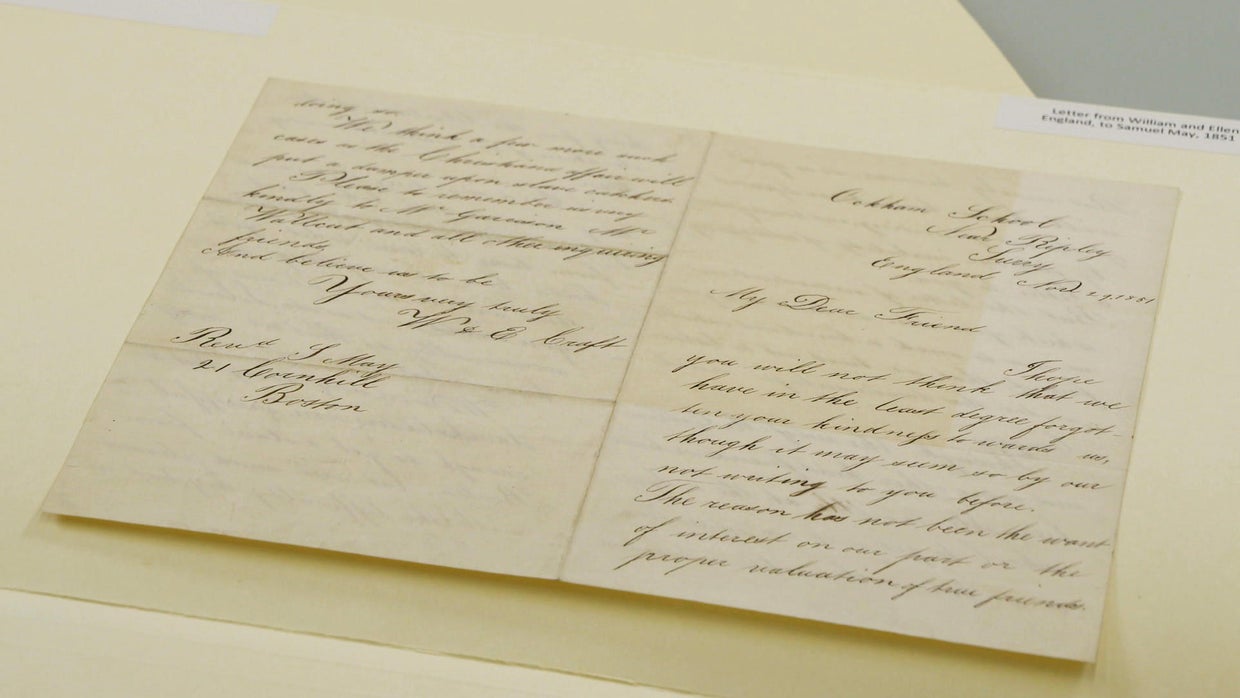 Letter from William and Ellen
England, to Samuel May, 1851
doing so.
We think a few more such
cases as the Christiana affair will
put a damper upon slave catchers.
Please to remember us very
kindly to Mr Garrison Mr
Wallcut and all other inquiring
friends
And believe us to be
Yours very truly
W & E Craft
Revd S May
21 Cornhill
Boston
Ockham School
Near Ripley
Surry
England Nov 29, 1851
My Dear Friend
I hope
you will not think that we
have in the least degree forgot-
ten your kindness towards us,
though it may seem so by our
not writing to you before.
The reason has not been the want
of interest on our part or the
proper valuation of true friends.